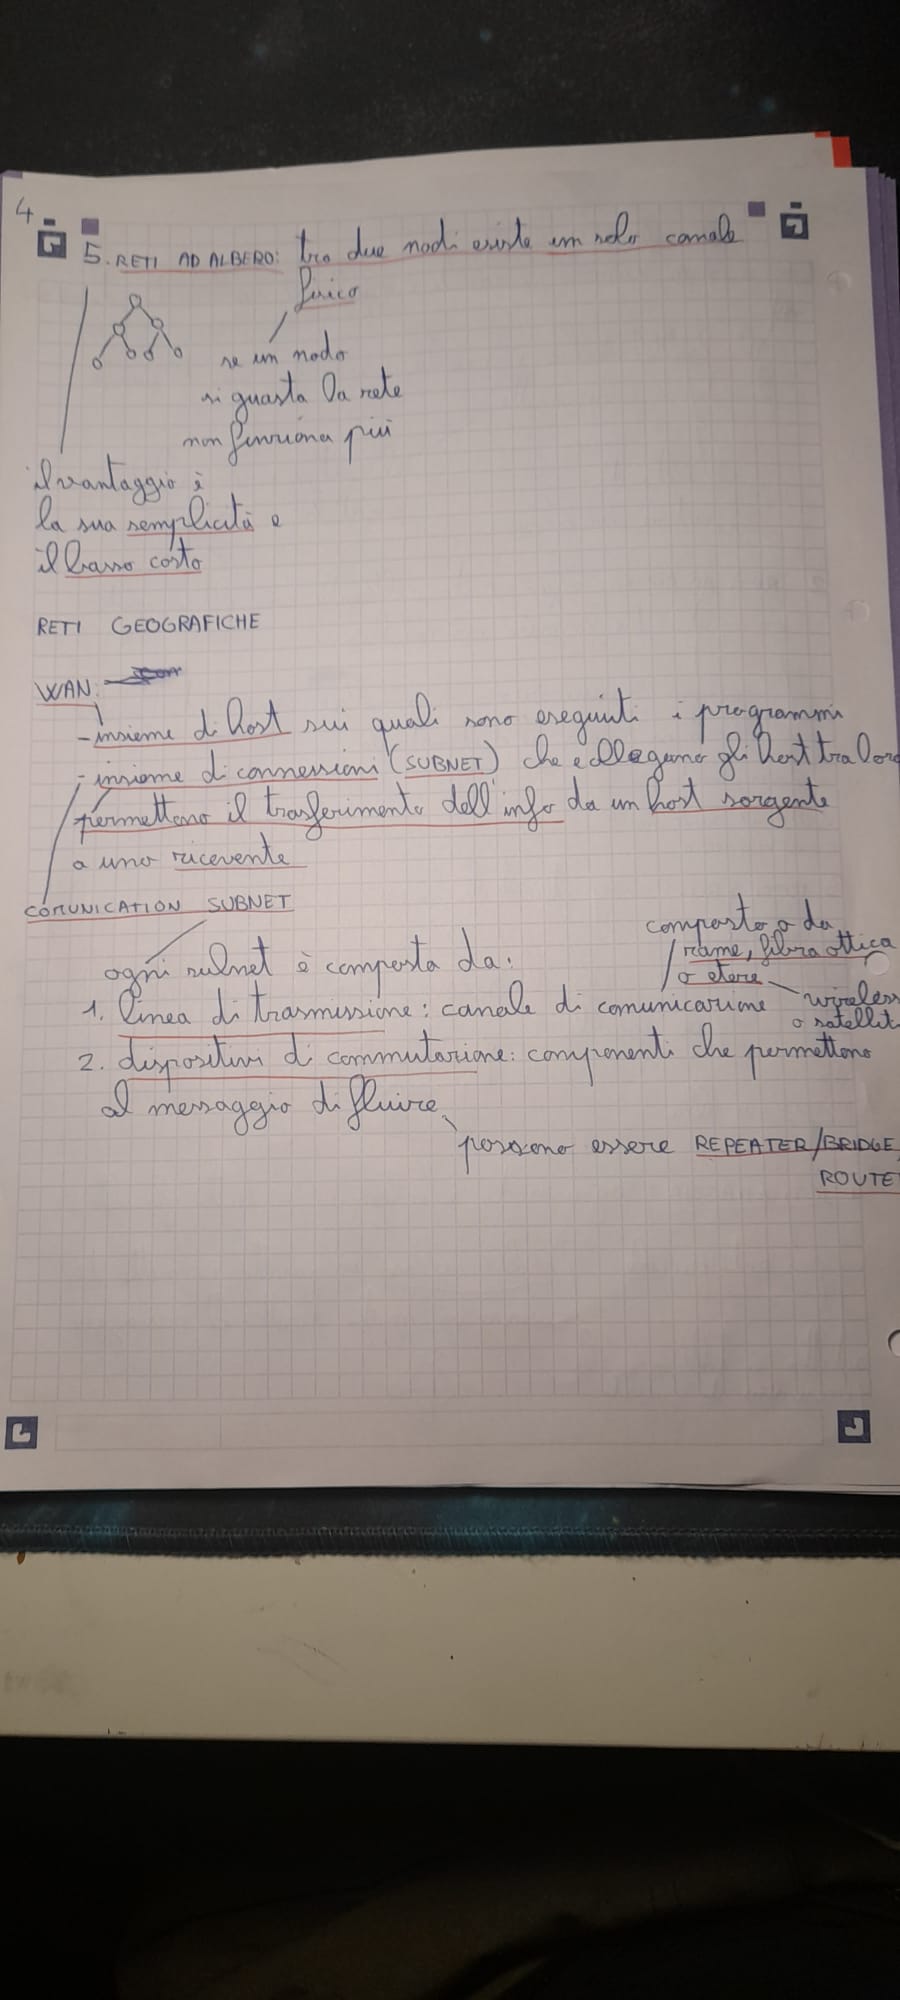 4
5. RETI AD ALBERO: tra due nodi esiste un solo canale
fisico
se un nodo
si guasta la rete
non funziona più
il vantaggio è
la sua semplicità e
il basso costo
RETI GEOGRAFICHE
WAN:
- insieme di host sui quali sono eseguiti i programmi
- insieme di connessioni (SUBNET) che collegano gli host tra loro
permettono il trasferimento dell'info da un host sorgente
a uno ricevente
COMUNICATION SUBNET
composto o da
ogni subnet è composta da:
rame, fibra ottica
o etere
1. linea di trasmissione: canale di comunicazione
wireless
o satellit
2. dispositivi di commutazione: componenti che permettono
al messaggio di fluire
possono essere REPEATER/BRIDGE
ROUTE